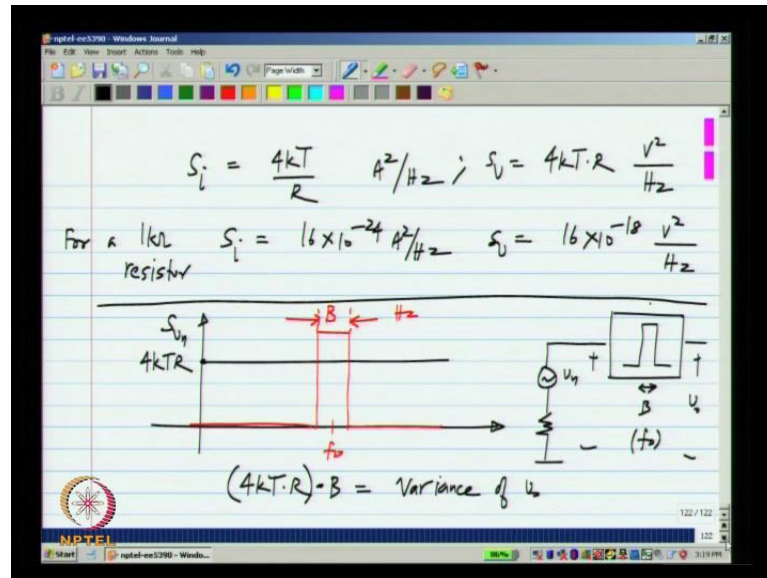 nptel-ee5390 - Windows Journal
File Edit View Insert Actions Tools Help
Page Width
B I
S_i = 4kT/R A²/Hz ; S_v = 4kT·R V²/Hz
For a 1kΩ S_i = 16 × 10⁻²⁴ A²/Hz S_v = 16 × 10⁻¹⁸ V²/Hz
resistor
S_vn B Hz
4kTR
v_n + B + v_o
f_o - (f_o) -
(4kT·R)·B = Variance of v_o
122 / 122
122
NPTEL
Start nptel-ee5390 - Windo... 86% 3:19 PM